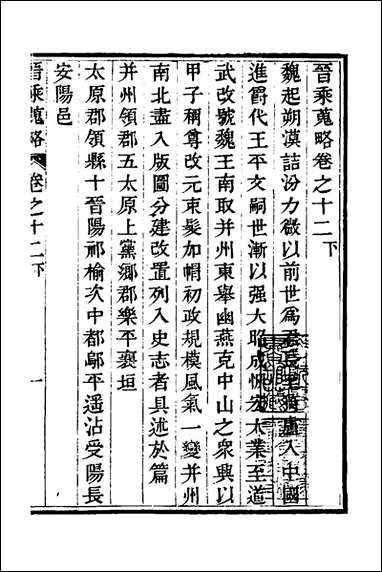 晉乘蒐略卷之十二下
魏起朔漠詰汾力微以前世爲君長至猗盧入中國
進爵代王平文嗣世漸以强大昭成恢宏大業至道
武改號魏王南取并州東舉幽燕克中山之衆興以
甲子稱尊改元束髮加帽初政規模風氣一變并州
南北盡入版圖分建改置列入史志者具述於篇
并州領郡五太原上黨鄉郡樂平襄垣
太原郡領縣十晉陽祁榆次中都鄔平遥沾受陽長
安陽邑
晉乘蒐略
卷之十二下
一